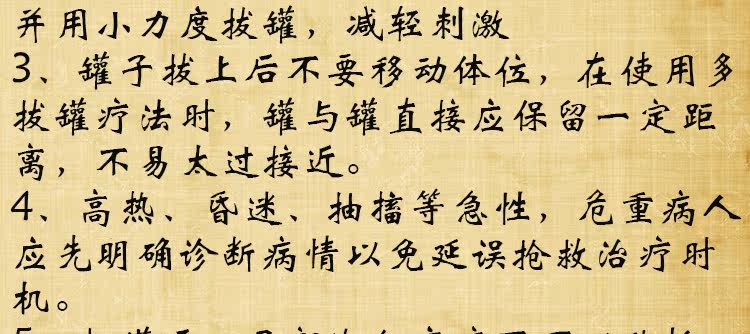 并用小力度拔罐，减轻刺激
3、罐子拔上后不要移动体位，在使用多
拔罐疗法时，罐与罐直接应保留一定距
离，不易太过接近。
4、高热、昏迷、抽搐等急性，危重病人
应先明确诊断病情以免延误抢救治疗时
机。